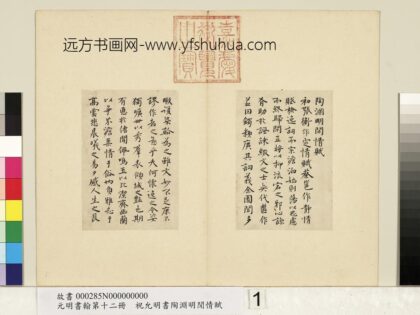 远方书画网-www.yfshuhua.com
陶淵明閒情賦
初張衡作定情賦蔡邕作靜情
賦檢逸詞而宗澹泊始則蕩以思慮
而終歸閑正將以抑流宕之邪心諒
有助於諷諫綴文之士奕代舊作
並因觸類廣其詞義余園閭多
暇復染翰為之雖文妙不足庶不
謬作者之意乎夫何懷逸之令姿
獨曠世以秀羣表傾城之艷色期
有德於傳聞佩鳴玉以比潔齊幽蘭
以爭芬淡柔情於俗內負雅志於
高雲悲晨曦之易夕感人生之長
故書 000285N000000000
元明書翰第十二冊 祝允明書陶淵明閒情賦
1